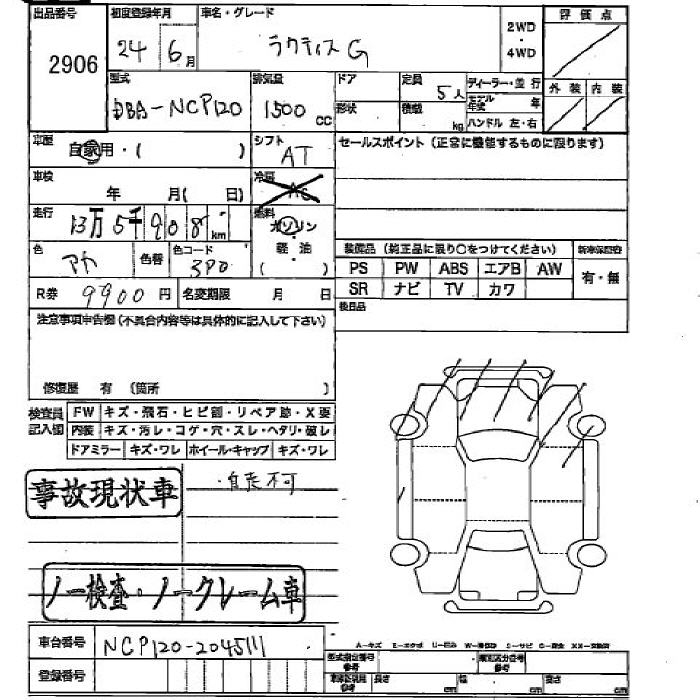 出品番号 初度登録年月 車名・グレード 2WD ・ 4WD 評価点
2906 24 6月 ラクティス G
型式 排気量 ドア 定員 5人 ディーラー・並行 外装 内装
DBA-NCP120 1500cc 形状 積載 kg モデル年式 年
ハンドル 左・右
車歴 自家用・( ) シフト AT セールスポイント(正常に機能するものに限ります)
車検 年 月( 日) 冷房 AC
走行 13万5千908km 燃料 ガソリン
軽・油
( )
色 アカ 色替 色コード 3P0 装備品(純正品に限り○をつけてください) 新車保証書
PS PW ABS エアB AW 有・無
R券 9900円 名変期限 月 日 SR ナビ TV カワ
注意事項申告欄(不具合内容等は具体的に記入して下さい) 後日品
修復歴 有(箇所 )
検査員記入欄 FW キズ・飛石・ヒビ割・リペア跡・X要
内装 キズ・汚レ・コゲ・穴・スレ・ヘタリ・破レ
ドアミラー キズ・ワレ ホイール・キャップ キズ・ワレ
事故現状車 ・自走不可
ノー検査・ノークレーム車
車台番号 NCP120-2045111
A-キズ E-エクボ U-凹み S-サビ
型式指定番号 参考 類別区分番号 参考
登録番号 長さ cm 幅 cm 高さ cm